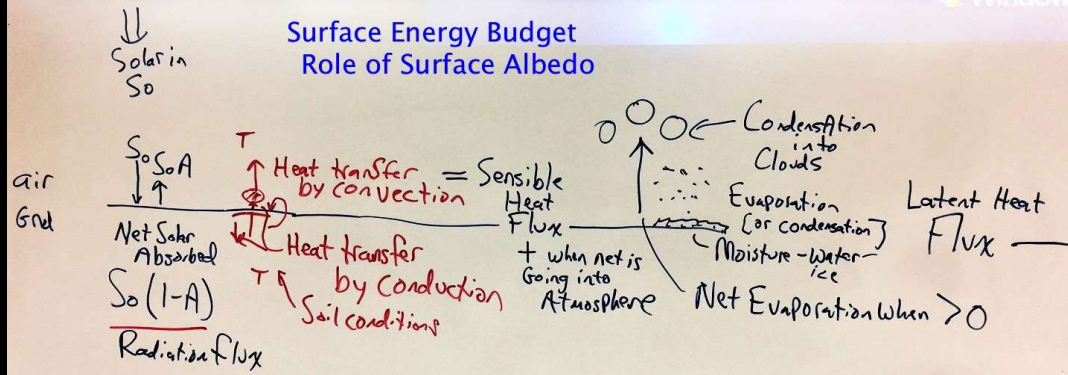 Surface Energy Budget
Role of Surface Albedo
Solar in
So
air
Gnd
So
SoA
Net Solar
Absorbed
So(1-A)
Radiation flux
T
Heat transfer
by convection
= Sensible
Heat
Flux
+ when net is
Going into
Atmosphere
Heat transfer
by conduction
T
Soil conditions
Condensation
into
Clouds
Evaporation
[or condensation]
Moisture - Water -
ice
Net Evaporation when >0
Latent Heat
Flux